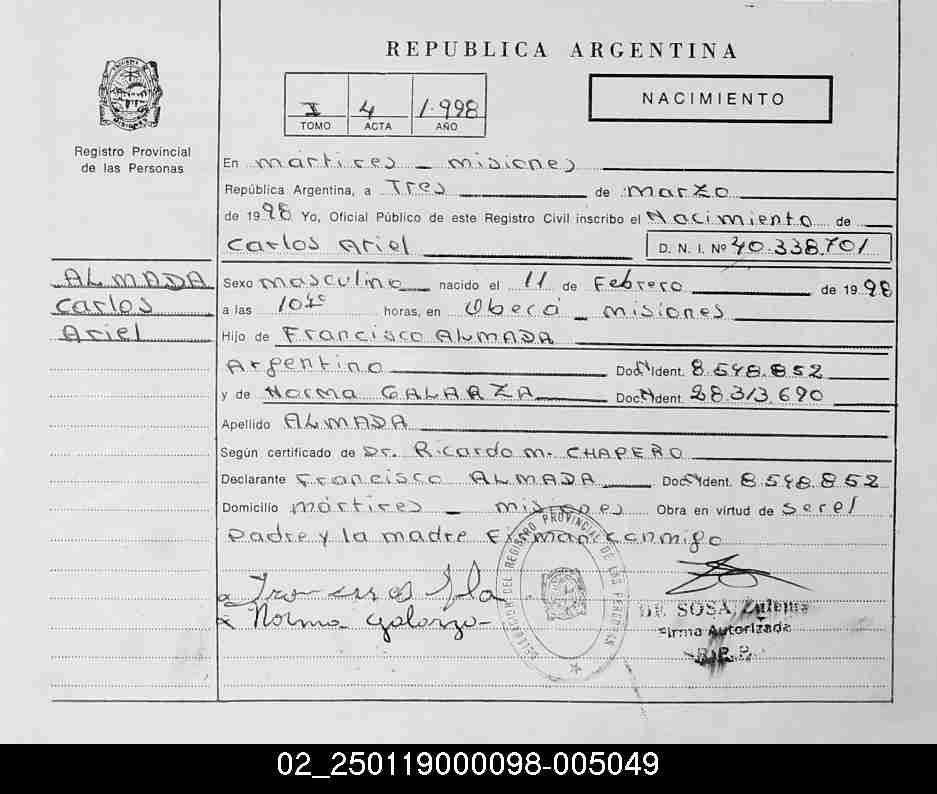 REPUBLICA ARGENTINA
I 4 1.998
TOMO ACTA AÑO
NACIMIENTO
Registro Provincial
de las Personas
ALMADA
Carlos
Ariel
En mártires - misiones
República Argentina, a Tres de marzo
de 1998 Yo, Oficial Público de este Registro Civil inscribo el Nacimiento de
Carlos Ariel D. N. I. Nº 40.338.701
Sexo masculino nacido el 11 de Febrero de 1998
a las horas, en Oberá - misiones
Hijo de Francisco ALMADA
Argentino Doc. Ident. 8.548.852
y de Norma GALARZA Doc. Ident. 28.313.690
Apellido ALMADA
Según certificado de Dr. Ricardo M. CHAPERO
Declarante Francisco ALMADA Doc. Ident. 8.548.852
Domicilio mártires - misiones Obra en virtud de ser el
Padre y la madre Firman conmigo
Norma Galarza
DELEGACION DEL REGISTRO PROVINCIAL DE LAS PERSONAS
DE SOSA, Zulema
Firma Autorizada
R. P. P.
02_250119000098-005049